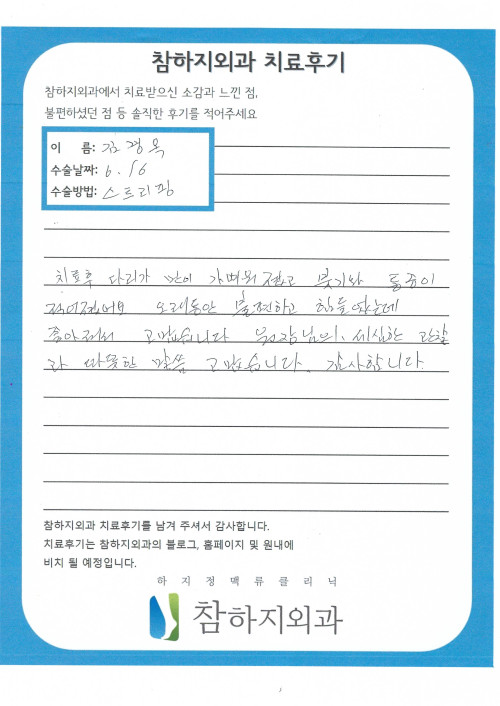 참하지외과 치료후기
참하지외과에서 치료받으신 소감과 느낀 점,
불편하셨던 점 등 솔직한 후기를 적어주세요
이 름: 김경옥
수술날짜: 6. 16
수술방법: 스트리핑
치료후 다리가 많이 가벼워 졌고 붓기와 통증이
적어졌어요 오래동안 불편하고 힘들었는데
좋아져서 고맙습니다 원장님의, 세심한 관찰
과 따뜻한 말씀 고맙습니다. 감사합니다.
참하지외과 치료후기를 남겨 주셔서 감사합니다.
치료후기는 참하지외과의 블로그, 홈페이지 및 원내에
비치 될 예정입니다.
하지정맥류클리닉
참하지외과